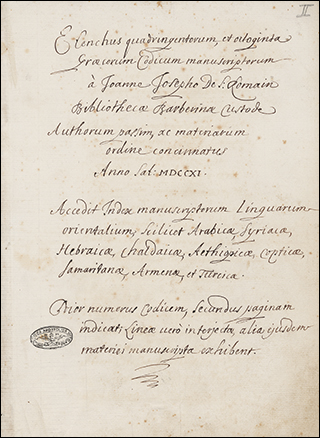 II
Elenchus quadringentorum, et octoginta
Græcorum Codicum manuscriptorum
à Joanne Josepho De S. Romain
Bibliothecæ Barberinæ Custode
Authorum passim, ac materiarum
ordine concinnatus
Anno Sal: MDCCXI.
Accedit Index manuscriptorum Linguarum
orientalium, scilicet Arabicæ, Syriacæ,
Hebraicæ, Chaldaicæ, Aethiopicæ, Copticæ,
Samaritanæ, Armenæ, et Turcicæ.
Prior numerus Codicem, secundus paginam
indicat; Lineæ verò interjectæ, alea ejusdem
materiei manuscripta exhibent.